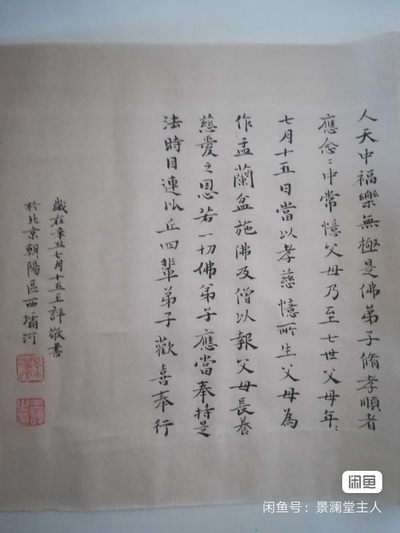 人天中福樂無極是佛弟子脩孝順者
應念〻中常憶父母乃至七世父母年〻
七月十五日當以孝慈憶所生父母為
作盂蘭盆施佛及僧以報父母長養
慈愛之恩若一切佛弟子應當奉持是
法時目連比丘四輩弟子歡喜奉行
歲在辛丑七月十五王評敬書
於北京朝陽區西壩河
闲鱼
闲鱼号：景澜堂主人